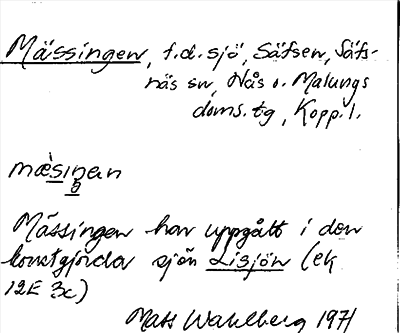 Mässingen, f.d. sjö, Säfsen, Säfs-
näs sn, Nås o. Malungs
doms. tg, Kopp. l.
mæ̀siŋan
Mässingen har uppgått i den
konstgjorda sjön Lisjön (ek
12E 3c)
Mats Wahlberg 1971